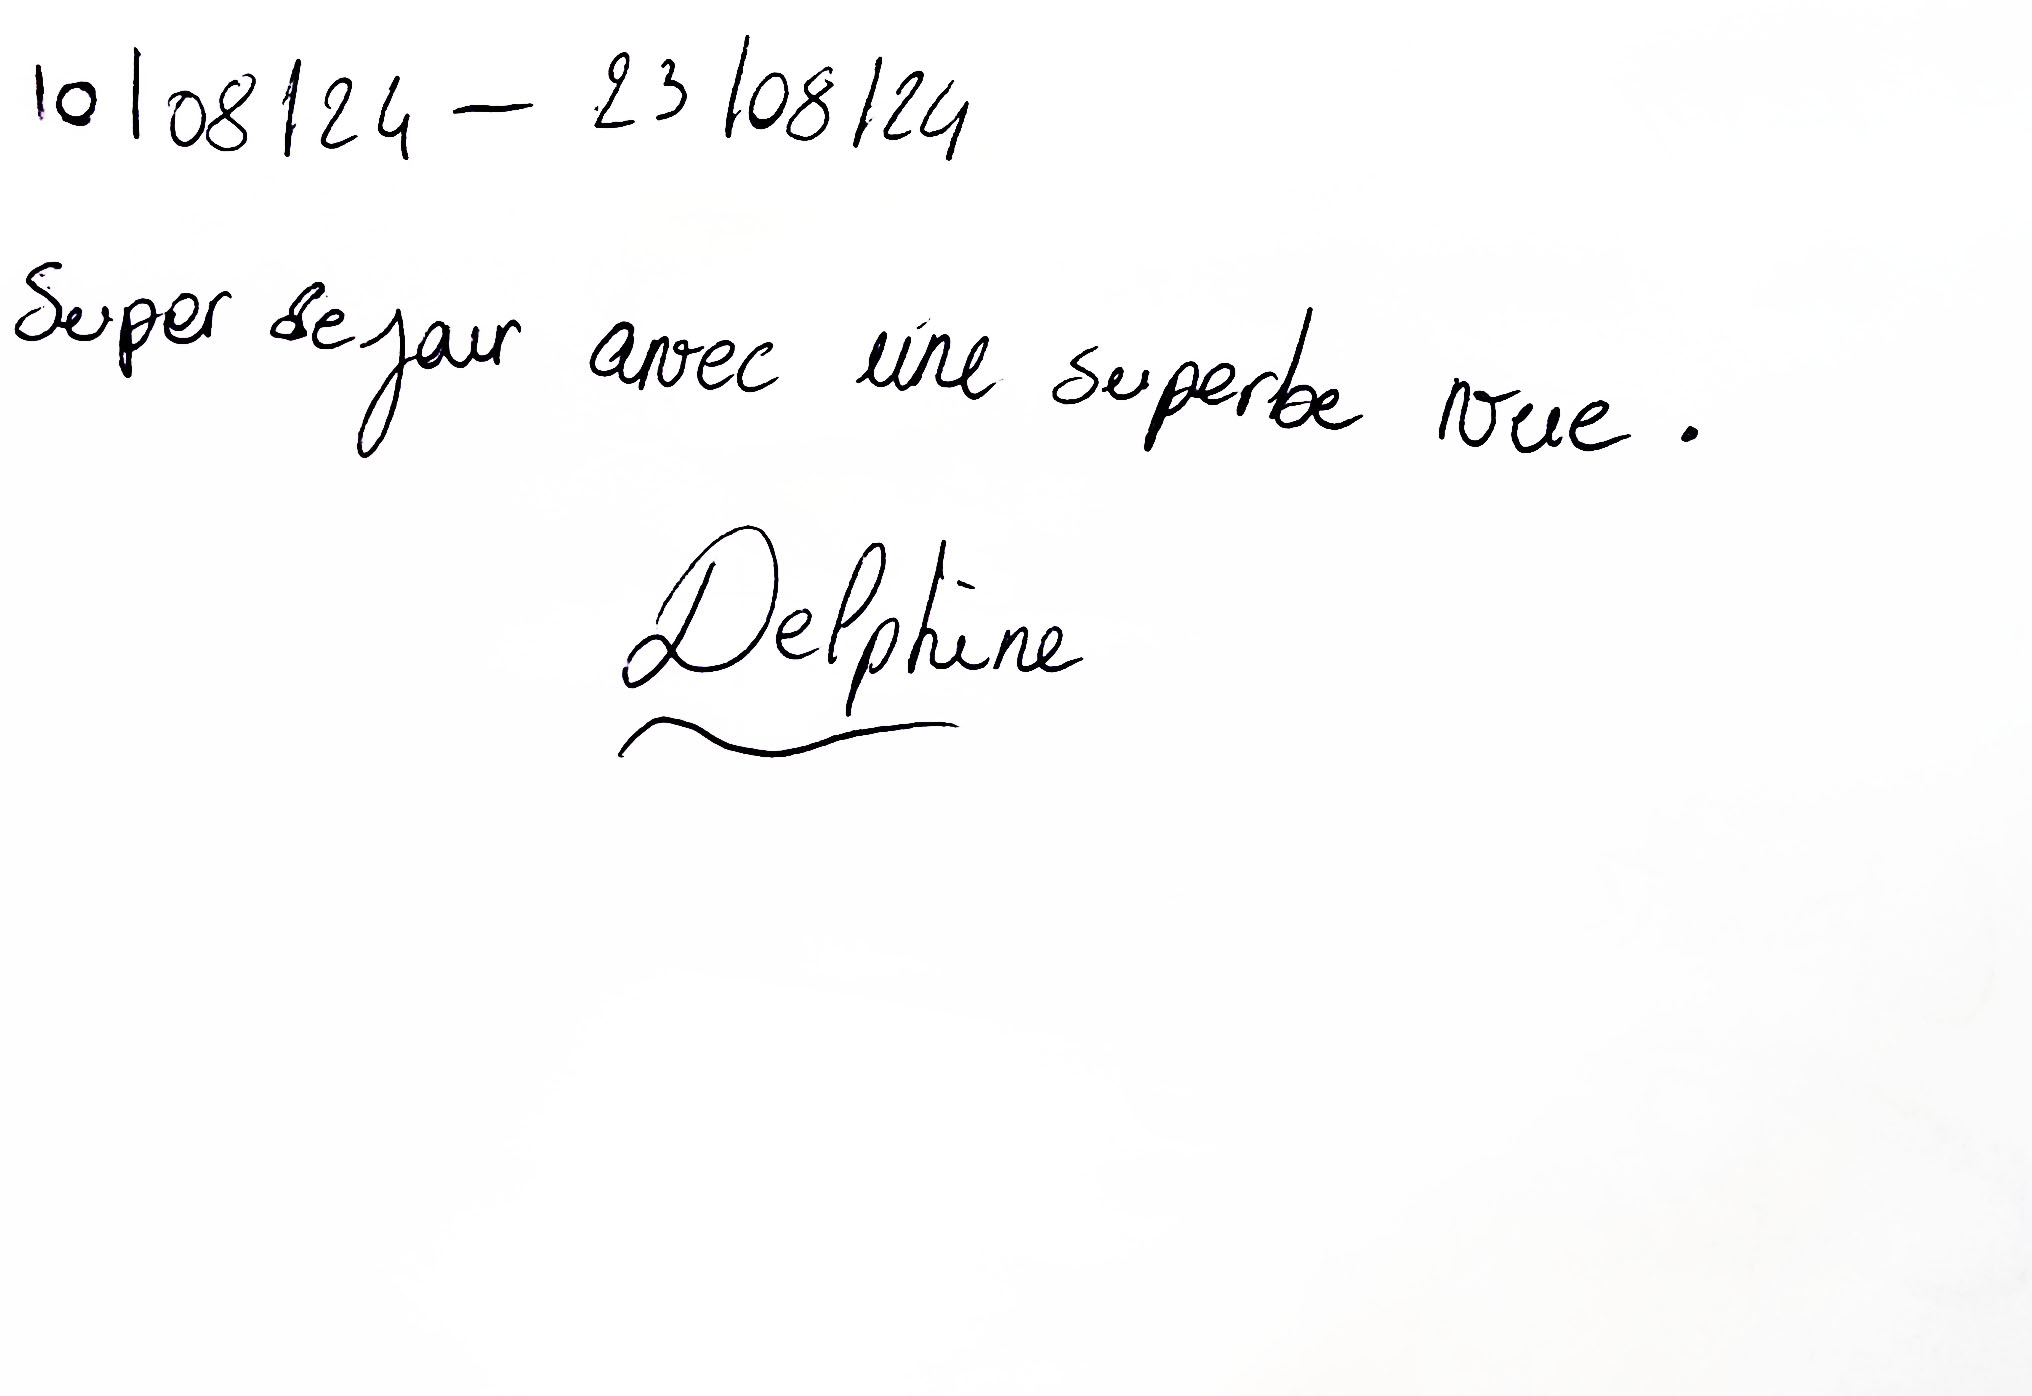 10/08/24 — 23/08/24
Super sejour avec une superbe vue.
Delphine